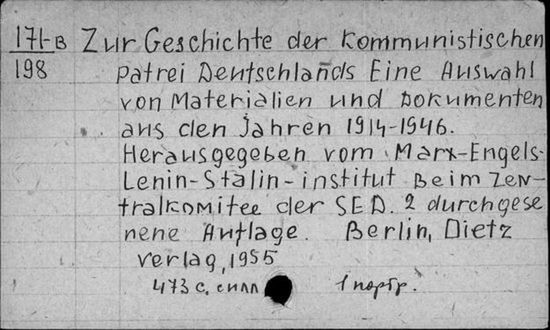 171-B Zur Geschichte der Kommunistischen
198 Patrei Deutschlands Eine Auswahl
von Materialien und Dokumenten
aus den Jahren 1914-1946.
Herausgegeben vom Marx-Engels-
Lenin-Stalin-institut Beim Zen-
tralkomitee der SED. 2 durchgese
nene Auflage. Berlin, Dietz
verlag, 1955
473 с. силл 1 портр.